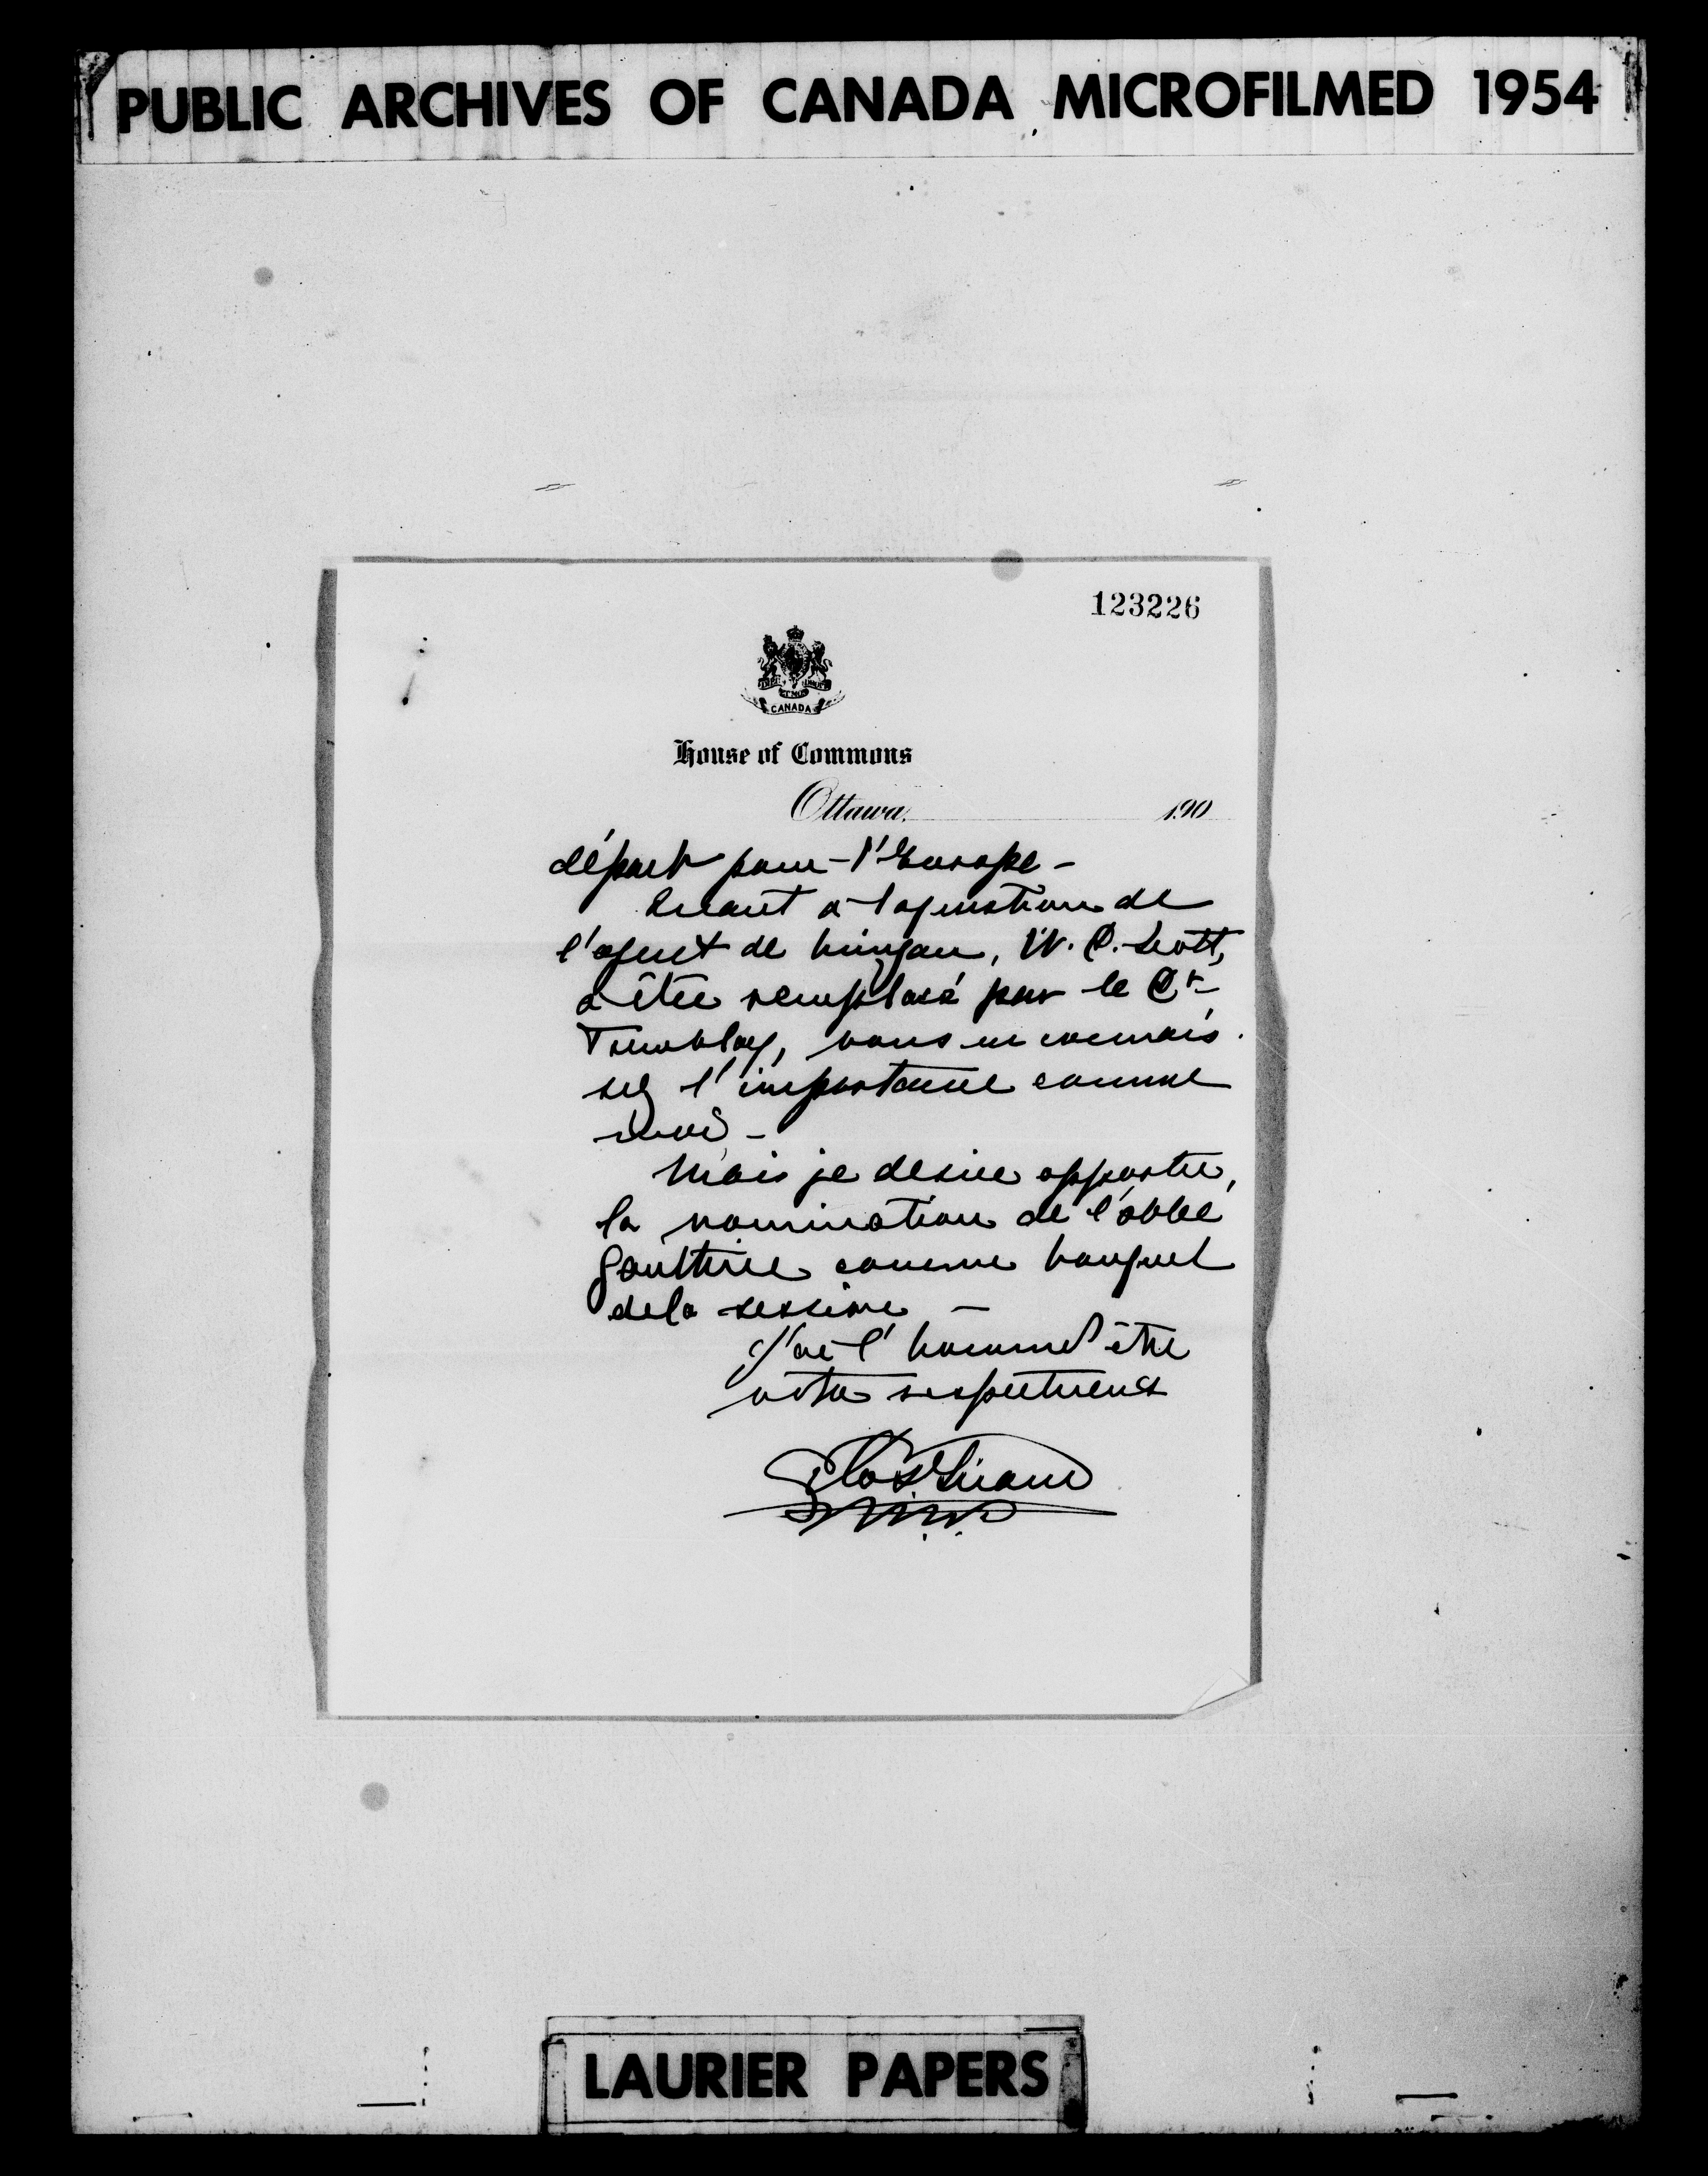 PUBLIC ARCHIVES OF CANADA MICROFILMED 1954
123226
CANADA
House of Commons
Ottawa, 190
départ pour l'Europe -
Quant à la question de
l'agent de Mingan, W. D. Scott,
à être remplacé par le Dr
Tremblay, vous en connais
sez l'importance comme
moi -
Mais je desire apporter,
la nomination de l'abbé
Gauthier comme bouquet
de la session -
J'ai l'honneur d'être
votre respectueux
LAURIER PAPERS